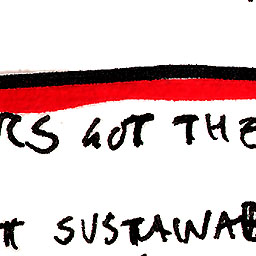 RS GOT THE
TT SUSTAINAB